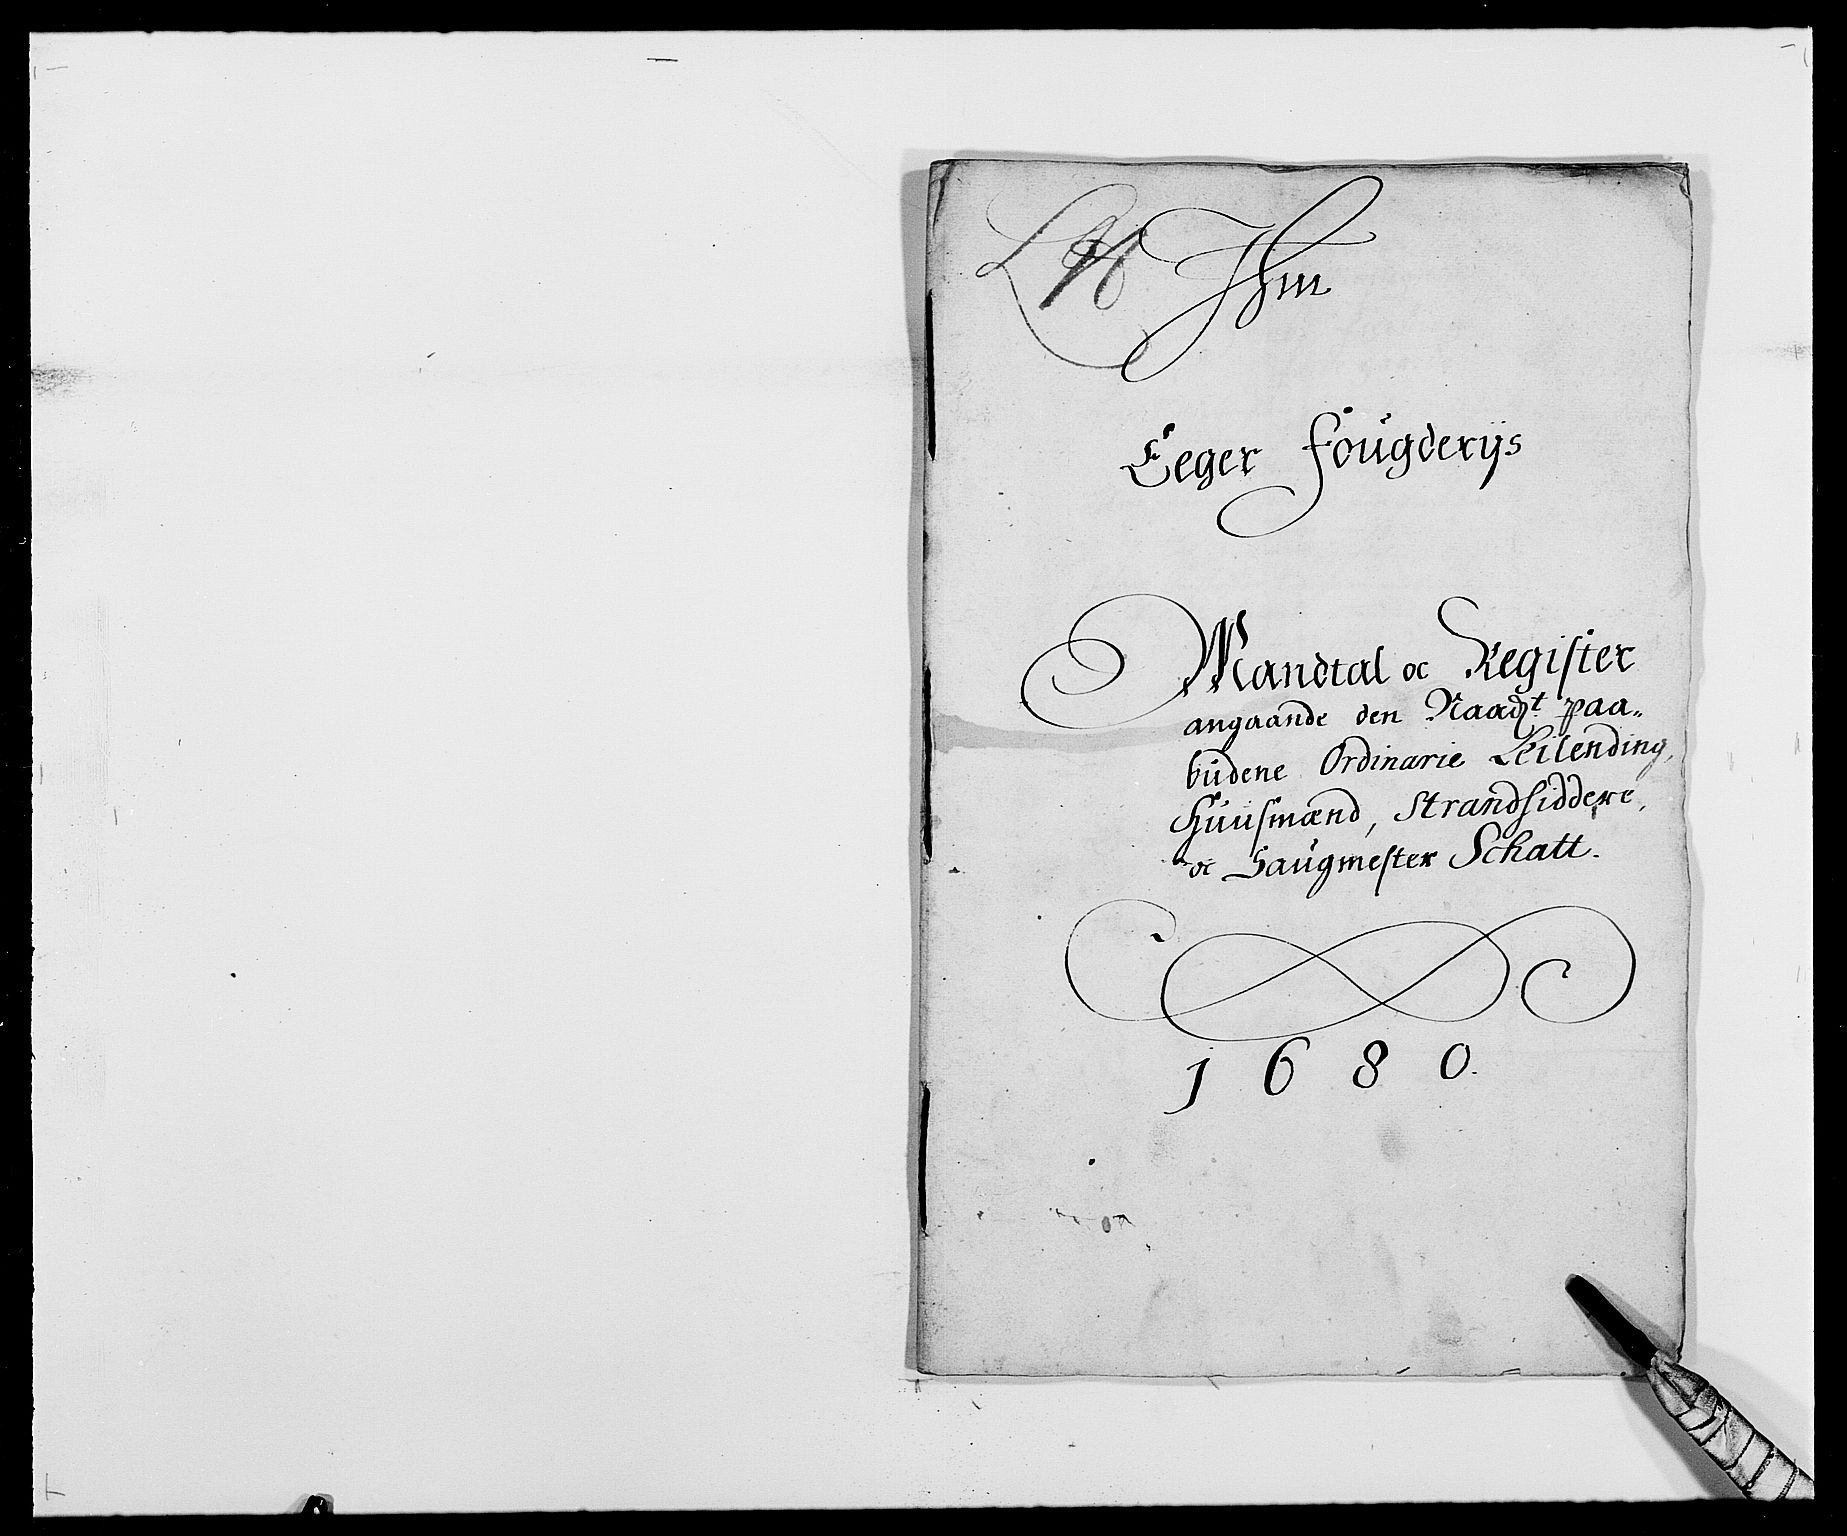 Eeger Fougderijs
Mandtal oc Register
angaande den Naadt paa„
budene Ordinarie Leilending,
Huusmænd, Strandsiddere,
oc Saugmester Schatt.
1680.